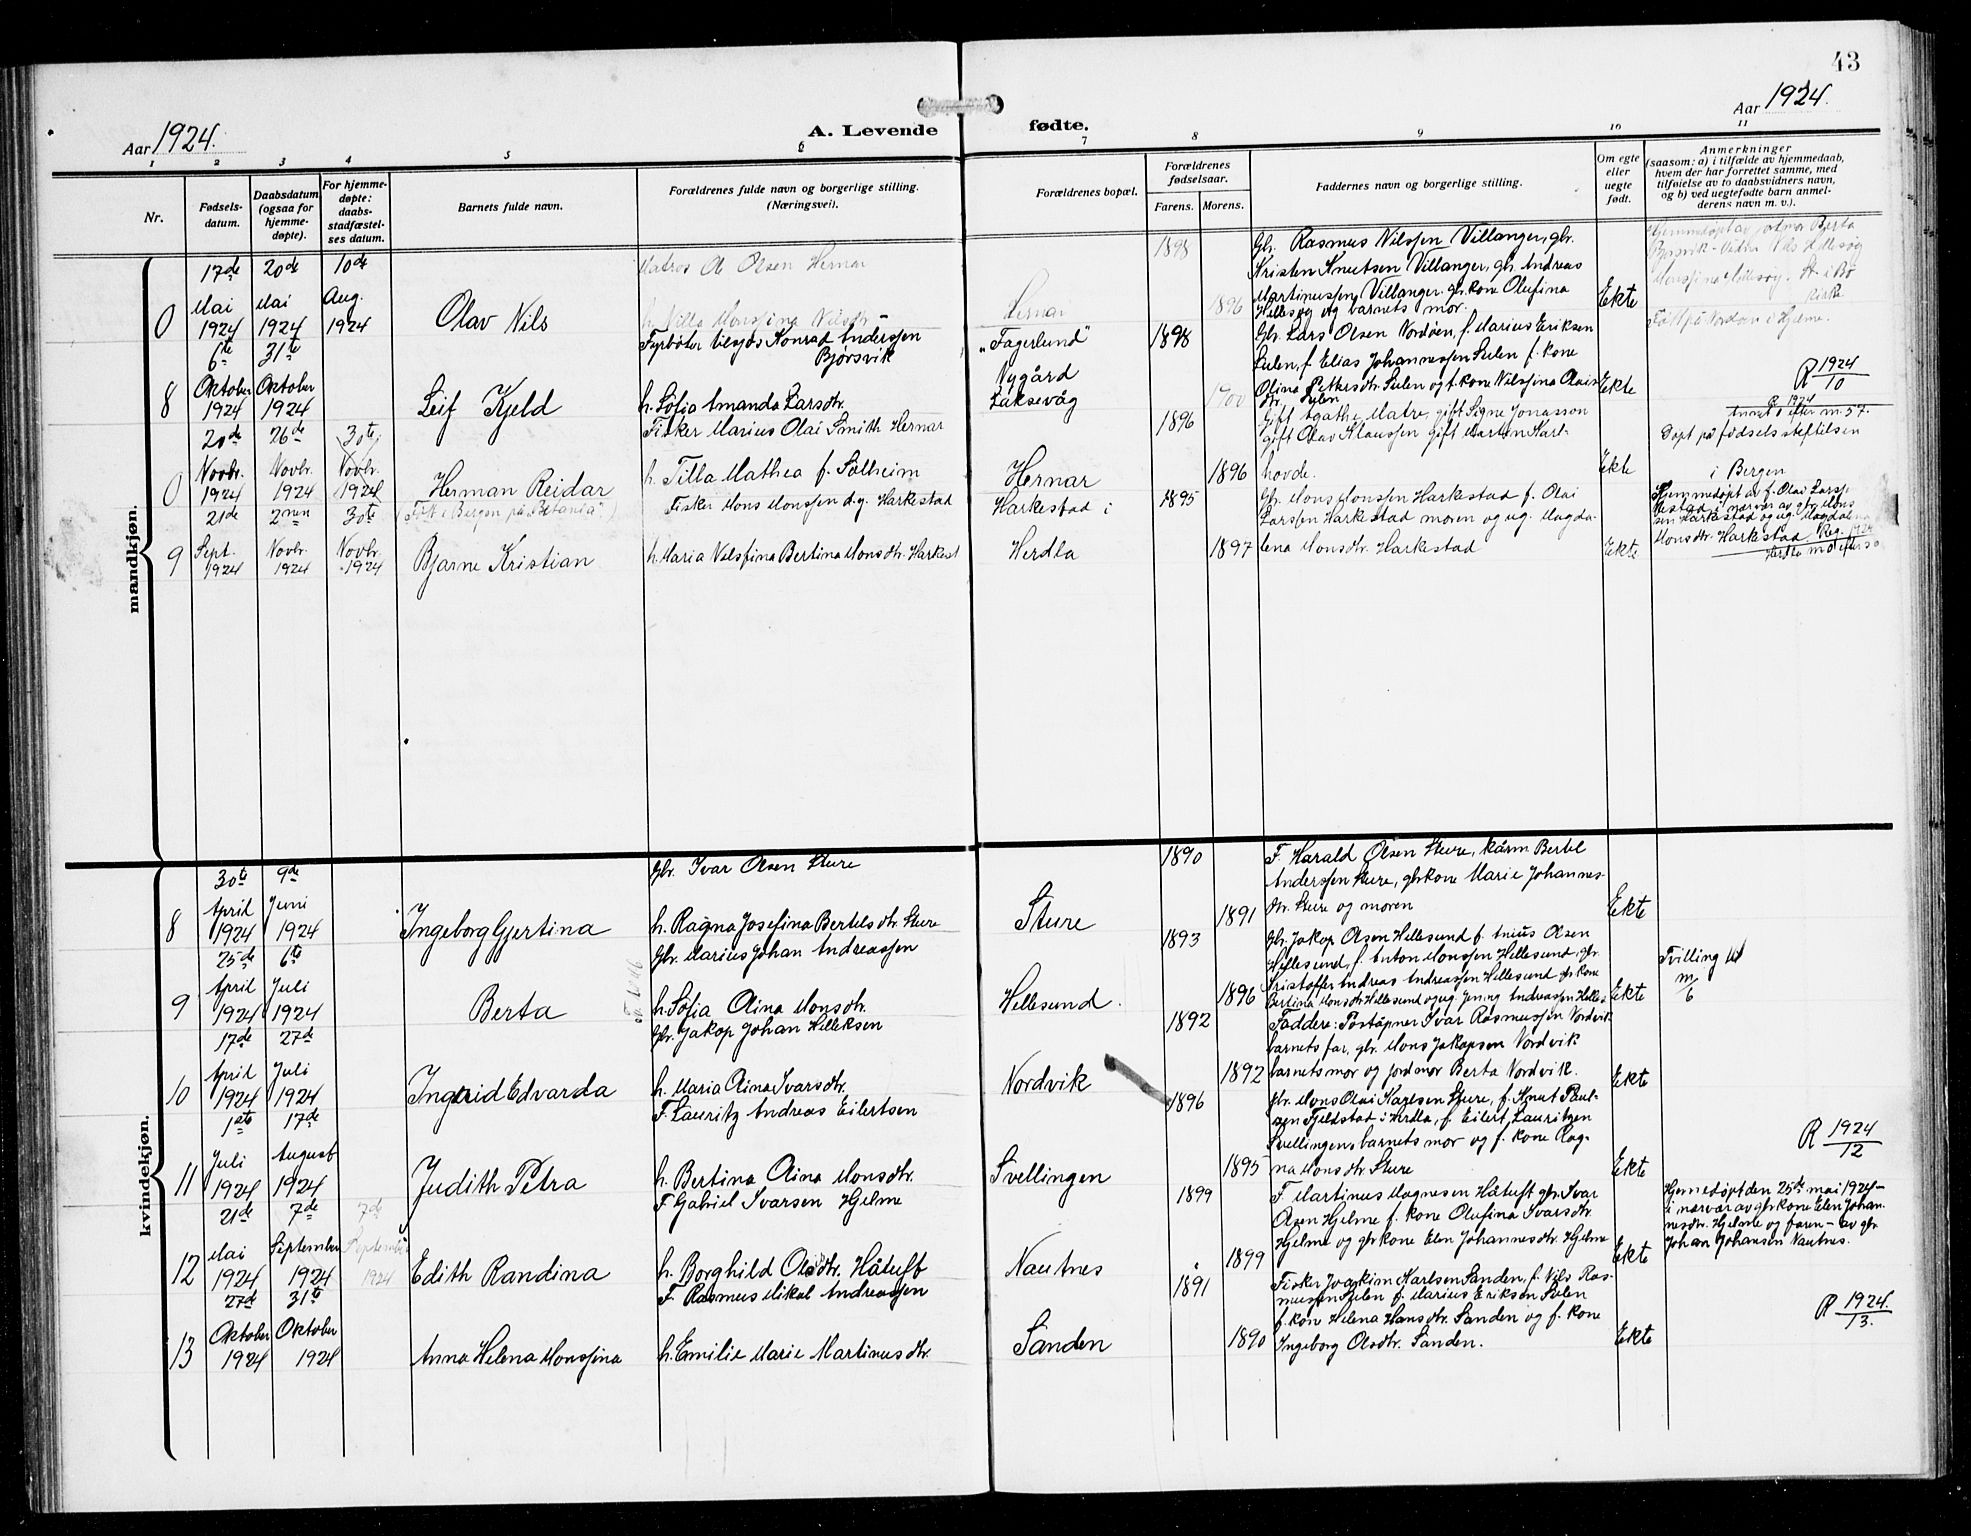 43
Aar 1924.
A. Levende fødte.
Aar 1924.
1 2 3 4 5 6 7 8 9 10 11
Nr.
Fødsels-
datum.
Daabsdatum
(ogsaa for
hjemme-
døpte).
For hjemme-
døpte:
daabs-
stadfæstel-
ses datum.
Barnets fulde navn.
Forældrenes fulde navn og borgerlige stilling.
(Næringsvei).
Forældrenes bopæl.
Forældrenes
fødselsaar.
Farens. Morens.
Faddernes navn og borgerlige stilling.
Om egte
eller
uegte
født.
Anmerkninger
(saasom: a) i tilfælde av hjemmedaab,
hvem der har forrettet samme, med
tilføielse av to daabsvidners navn,
og b) ved uegtefødte barn anmel-
derens navn m. v.).
mandkjøn.
0
17de
Mai
1924
20de
Mai
1924
10de
Aug.
1924
Olav Nils
Matros O Olsen Hernar
Hernar
1898
1896
Gbr. Rasmus Nilssen Villanger, gbr.
Kristen Knutsen Villanger, gbr Andreas
Martinussen Villanger. gbr kone Olufina
Hillesøy og barnets mor.
Ekte
8
6te
Oktober
1924
31te
Oktober
1924
Leif Kjeld
Fyrbøter Nilsjos Konrad Anderssen
Bjørsvik
h. Sofia Amanda Larsdtr.
"Fagerlund"
Nygård
Laksevåg
1898
1900
Gbr. Lars Olsen Nordøen, f. Marius Eriksen
Sulen, f. Elias Johannessen Sulen f. kone
Olina Pettersdtr. Sulen og f. kone Nilssina Olais
dtr. Sulen
Ekte
R 1924
10
0
20de
Novbr.
1924
26de
Novbr.
1924
30te
Novbr.
1924
Herman Reidar
(Født i Bergen på "Betania")
Fisker Marius Olai Smith Hernar
h. Tilla Mathea f. Solheim
Hernar
1896
1896
Gift Agathe Matre, gift Signe Jonasson
gift Olav Klaussen gift Marten Karl-
hovde.
Ekte
R 1924
Døpt på fødselsstiftilsen
i Bergen
9
21de
Sept.
1924
2nen
Novbr.
1924
30te
Novbr.
1924
Bjarne Kristian
Fisker Mons Monssen d.y. Harkestad
h. Maria Nilsfina Bertina Monsdtr. Harkest
Harkestad i
Herdla
1895
1897
Gbr. Mons Monsen Harkestad f. Olai
Larssen Harkestad moren og ug. Magda-
lena Monsdtr. Harkestad
Ekte
Hjemmedøpt av f. Olai Larss.
Hkestad i nærvær av gbr Mons
sen Harkestad og ug. Magdalena
Monsdtr. Harkestad. Reg. 1924
kvindekjøn.
8
30te
April
1924
9de
Juni
1924
Ingeborg Gjertina
Gbr. Ivar Olsen Sture
h. Ragna Josefina Bertelsdtr. Sture
Sture
1890
1891
F. Harald Olsen Sture, kårm. Bertel
Anderssen Sture, gbrkone Marie Johannes-
dtr. Sture og moren
Ekte
9
25de
April
1924
6te
Juli
1924
Berta
Gbr. Marius Johan Andreassen
h. Sofia Olina Monsdtr.
Hellesund.
1893
1896
Gbr. Jakop Olsen Hellesund f. Anius Olsen
Hellesund, f. Anton Monssen Hellesund, gbr.
Kristoffer Andreas Andreassen Hellesund gbr kone
Bertina Monsdtr Hellesund og ug. Jenny Andreassen Helles.
Ekte
Tvilling
m/6
10
17de
April
1924
27de
Juli
1924
Ingrid Edvarda
Gbr. Jakop Johan Hilleksen
h. Maria Olina Ivarsdtr.
Nordvik
1892
1892
Faddere: Poståpner Ivar Rasmussen Nordvik
barnets far, gbr. Mons Jakopsen Nordvik
barnets mor og jordmor Berta Nordvik.
Ekte
11
1ste
Juli
1924
17de
August
1924
Judith Petra
F. Lauritz Andreas Eilertsen
h. Bertina Olina Monsdtr.
Svellingen
1896
1895
Gbr. Mons Olai Karlsen Sture, f. Knut Paul-
sen Fjeldstad i Herdla, f. Eilert Lauritzen
Svellingen, barnets mor og f. kone Rag-
na Monsdtr. Sture
Ekte
R 1924
12
12
21de
Mai
1924
7de
September
1924
7de
September
1924
Edith Randina
F. Gabriel Ivarsen Hjelme
h. Borghild Olsdtr. Håtuft
Nautnes
1899
1899
F. Martinus Magnesen Håtuft gbr. Ivar
Olsen Hjelme f. kone Olufina Ivarsdtr.
Hjelme og gbrkone Elen Johannesdtr. Hjelme
Ekte
Hjemedøpt den 25de mai 1924 -
i nærvær av gbrkone Elen Johan-
nesdtr. Hjelme og faren - av gbr.
Johan Johansen Nautnes.
13
27de
Oktober
1924
31te
Oktober
1924
Anna Helena Monssina
F. Rasmus Mikal Andreassen
h. Emilie Marie Martinusdtr.
Sanden
1891
1890
Fisker Joakim Karlsen Sanden, f. Nils Ras-
mussen Sulen f. Marius Eriksen Sulen
f. kon Helena Hansdtr. Sanden og f. kone
Ingeborg Olsdtr. Sanden.
Ekte
R 1924.
13.